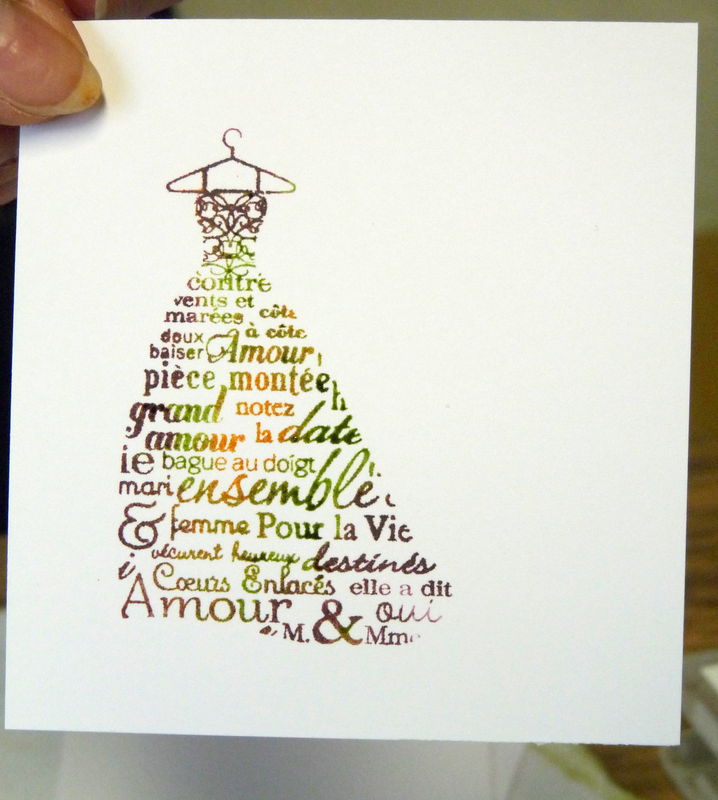 contre
vents et
marées côte
à côte
doux
baiser Amour
pièce montée
grand notez
amour la date
ie bague au doigt
mari ensemble
& femme Pour la Vie
vécurent heureux destinés
Coeurs Enlacés elle a dit
Amour oui
M. & Mme